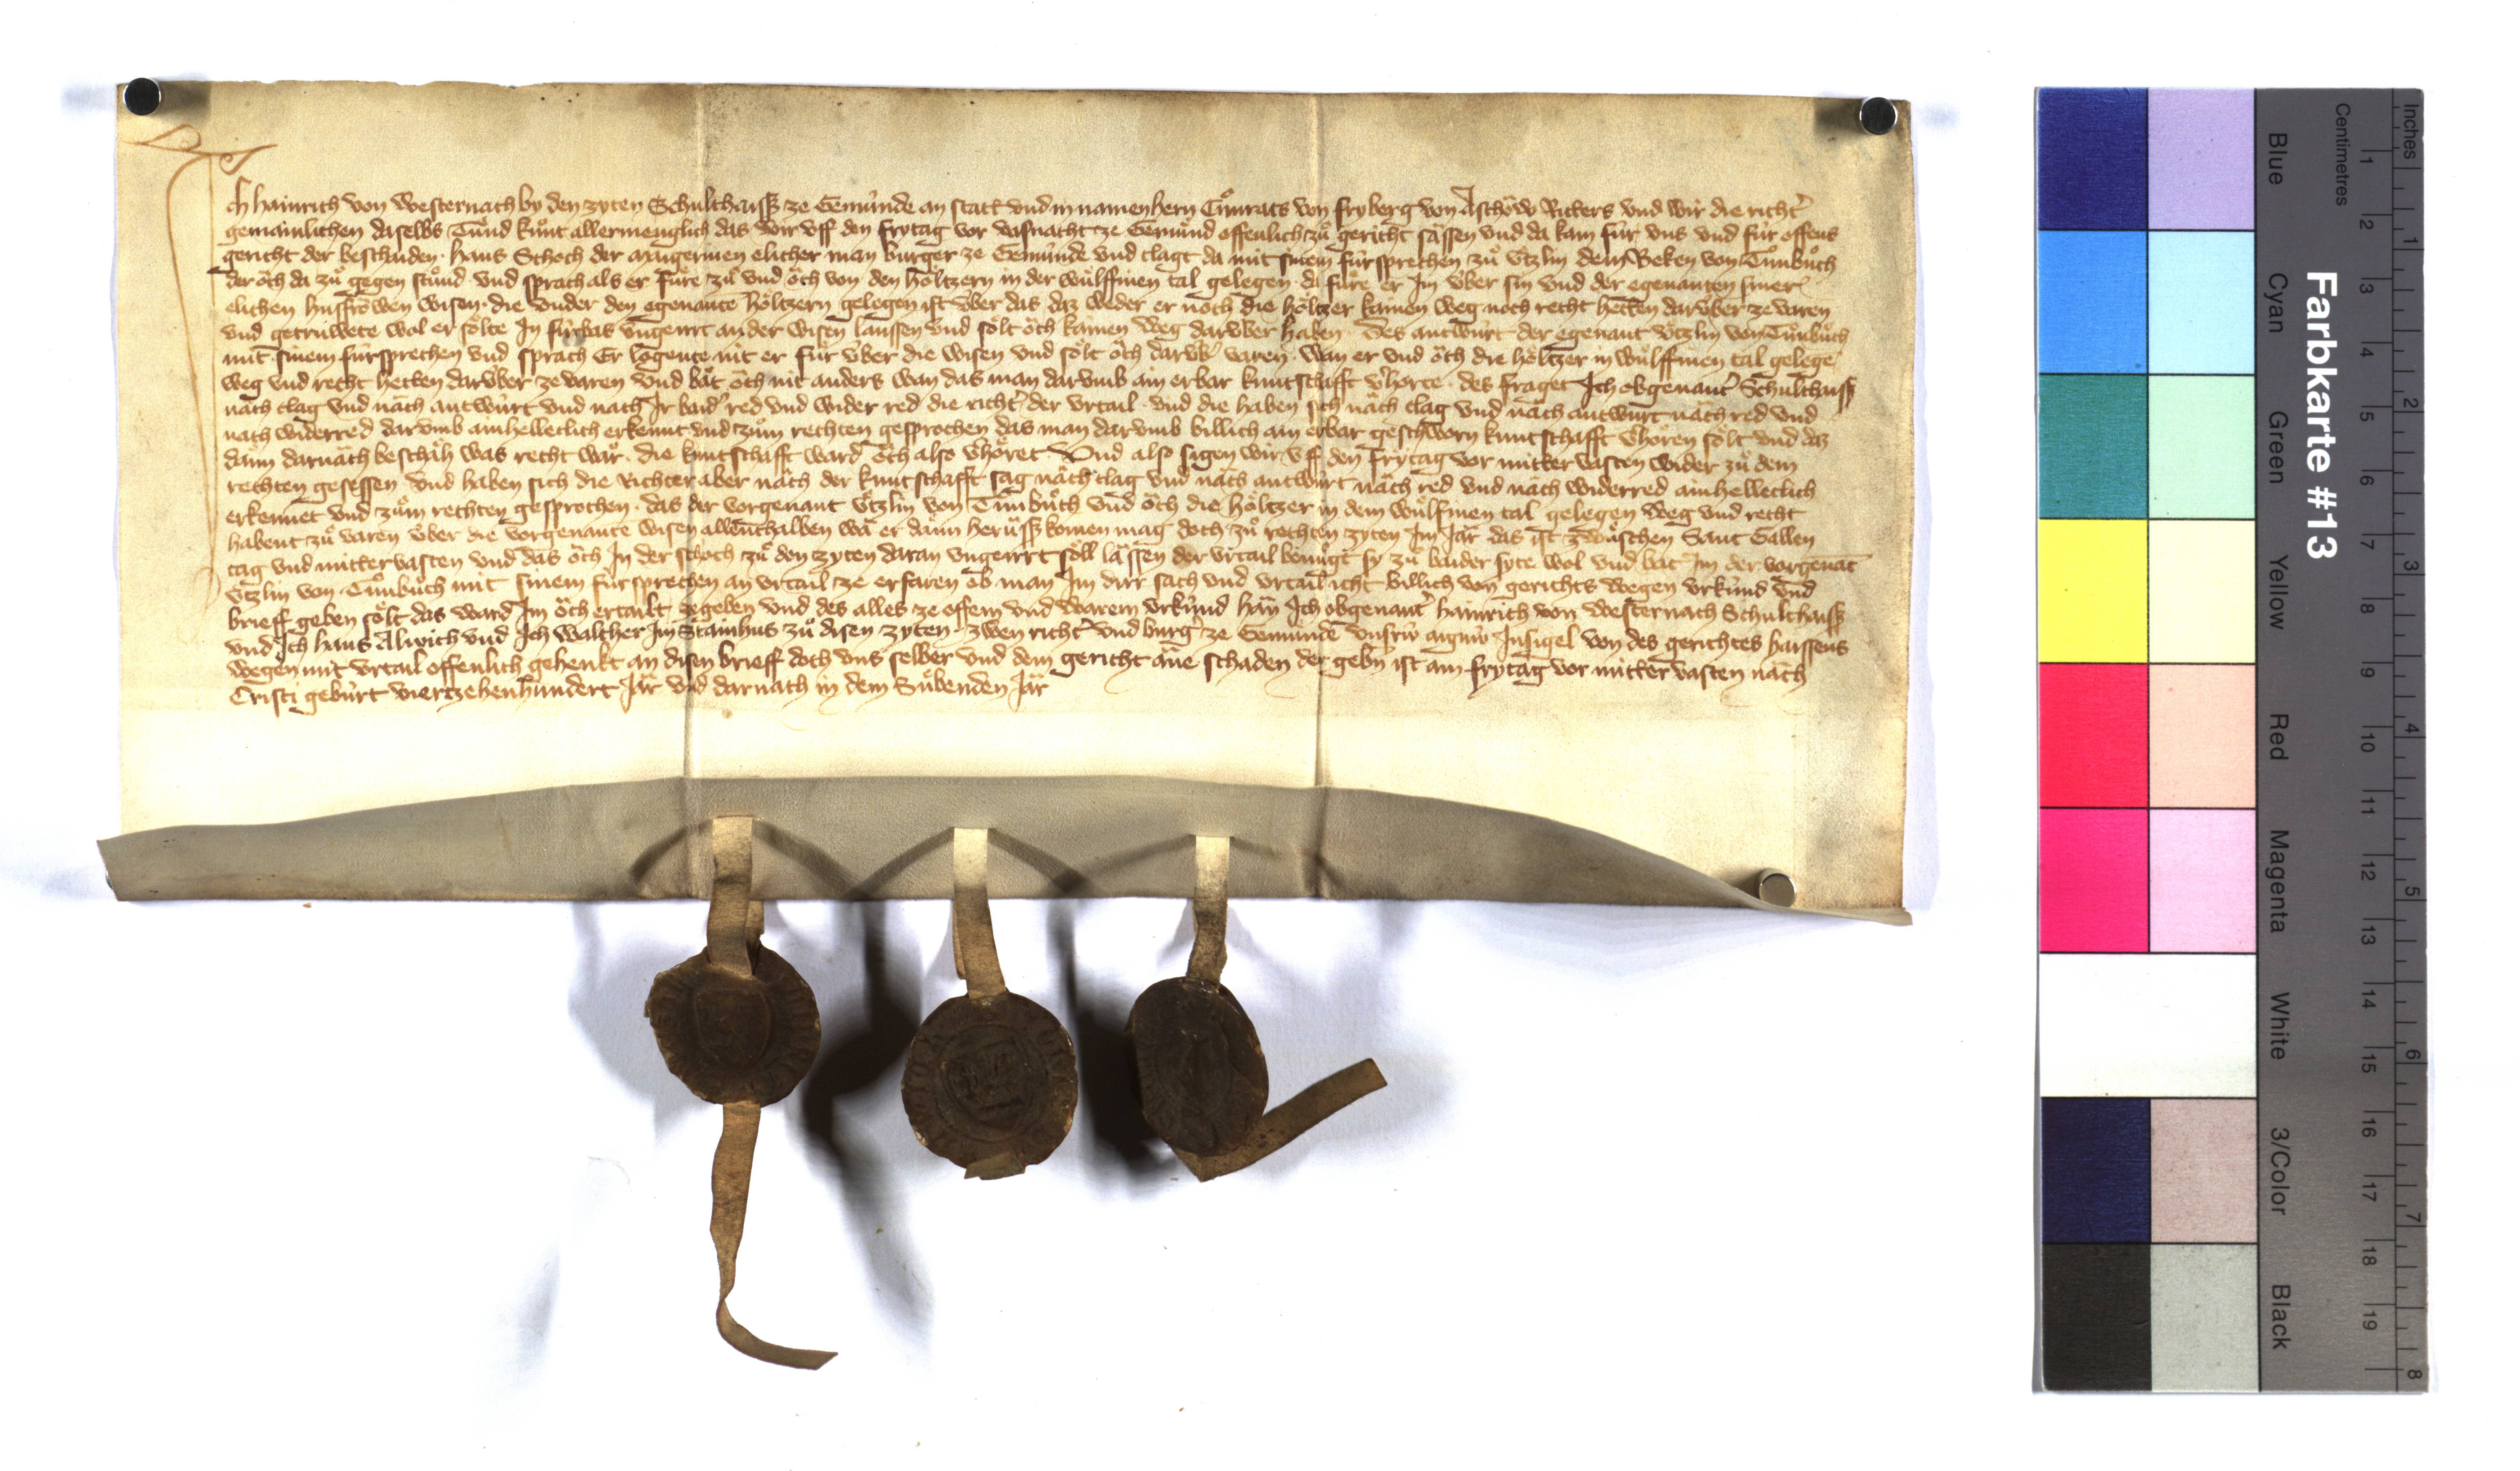 Ich Hainrich von Westernach by den zyten Schulthaiss ze Gemünde an statt und in namen hern Cůnrats von fryberg von Ritters und wir die richt̕
gemainlichen daselbs Tůnd kunt allermenglich das wir uff den frytag vor vasnacht ze Gemünd offenlich zů gericht sässen und da kam für uns und für offens
gericht der beschaiden hans Schoch der elicher man burger ze Gemünde und clagt da mit sinem fürsprechen zů Ůtzlin dem Beken von Tůnbůch
der öch da zů gegen stůnd und sprach als er füre zů und öch von den höltzern in der wůlffinen tal gelegen da füre er Im über sin und der egenanten siner
elichen husfröwen wisen die under den egenante höltzern gelegen ist über das daz weder er noch die höltzer kainen weg noch recht hetten darüber ze varen
und getruwete wol er sölte In fürbas ungeirrt an der wisen laussen und sölt öch kainen weg darüber haben Des antwürt der egenant Ůtzlin von Tůnbůch
mit sinem fürsprechen und sprach Er lögente nit er für über die wisen und sölt öch darüb̕ varen wan er und öch die höltzer in wůlffinen tal gelege
weg und recht hetten darüber ze varen und bät öch nit anders wan das man darumb ain erbar kuntschafft v̕horte des fraget Ich obgenant̕ Schulthaiss
näch clag und näch antwürt und näch Ir baid̕ red und wider red die richt̕ der urtail und die haben sich näch clag und näch antwürt näch red und
näch widerred darumb ainhelleclich erkennt und zům rechten gesprochen das man darumb billich ain erbar geschworn kuntschafft v̕hören sölt und daz
dann darnäch beschäh was recht wär die kuntschafft ward öch also v̕höret Und also sigen wir uff den frytag vor mitter vasten wider zů dem
rechten gesessen und haben sich die Richter aber näch der kuntschafft sag näch clag und näch antwürt näch red und näch widerred ainhelleclich
erkennet und zům rechten gesprochen das der vorgenant Ůtzlin von Tůnbůch und öch die höltzer in dem wůlfinen tal gelegen weg und recht
habent zů varen über die vorgenante wisen allenthalben wä er dann herüss komen mag doch zů rechten zyten Im Jär das ist zwüschen Sant Gallen
tag und mittervasten und das öch In der schoch zů den zyten daran ungeirrt söll lässen der urtail benügt sy zů baider syte wol und bat Im der vorgenāt
Ůtzlin von Tůnbůch mit sinem fürsprechen an urtail ze erfaren ob man Im dirr sach und urtail icht billich von gerichts wegen urkünd und
brieff geben sölt das ward Im öch ertailt ze geben und des alles ze offem und warem urkünd hän Ich obgenant̕ hainrich von Westernach Schulthaiss
und Ich hans Alwich und Ich Walther Im Stainhus zů disen zyten zwen richt̕ und burg̕ ze Gemünde unsrü aignü Insigel von des gerichtes haissens
wegen mit urtail offenlich gehenkt an disen brieff doch uns selber und dem gericht äne schaden der gebn ist am frytag vor mitter vasten näch
Cristi gebürt viertzehenhundert Jär und darnach in dem Sübenden Jär
Farbkarte #13
Blue
Cyan
Green
Yellow
Red
Magenta
White
3/Color
Black
Centimetres
1 2 3 4 5 6 7 8 9 10 11 12 13 14 15 16 17 18 19
Inches
1 2 3 4 5 6 7 8